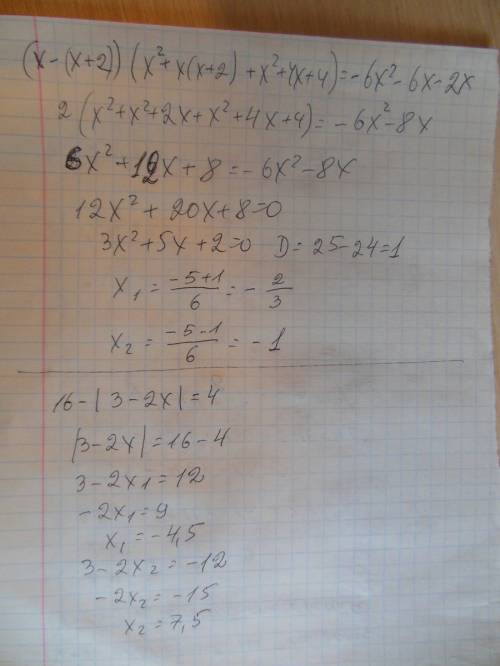 (x-(x+2))(x²+x(x+2)+x²+4x+4)=-6x²-6x-2x
2(x²+x²+2x+x²+4x+4)=-6x²-8x
6x²+12x+8=-6x²-8x
12x²+20x+8=0
3x²+5x+2=0 D=25-24=1
x₁=\frac{-5+1}{6}=-\frac{2}{3}
x₂=\frac{-5-1}{6}=-1
16-|3-2x|=4
|3-2x|=16-4
3-2x₁=12
-2x₁=9
x₁=-4,5
3-2x₂=-12
-2x₂=-15
x₂=7,5